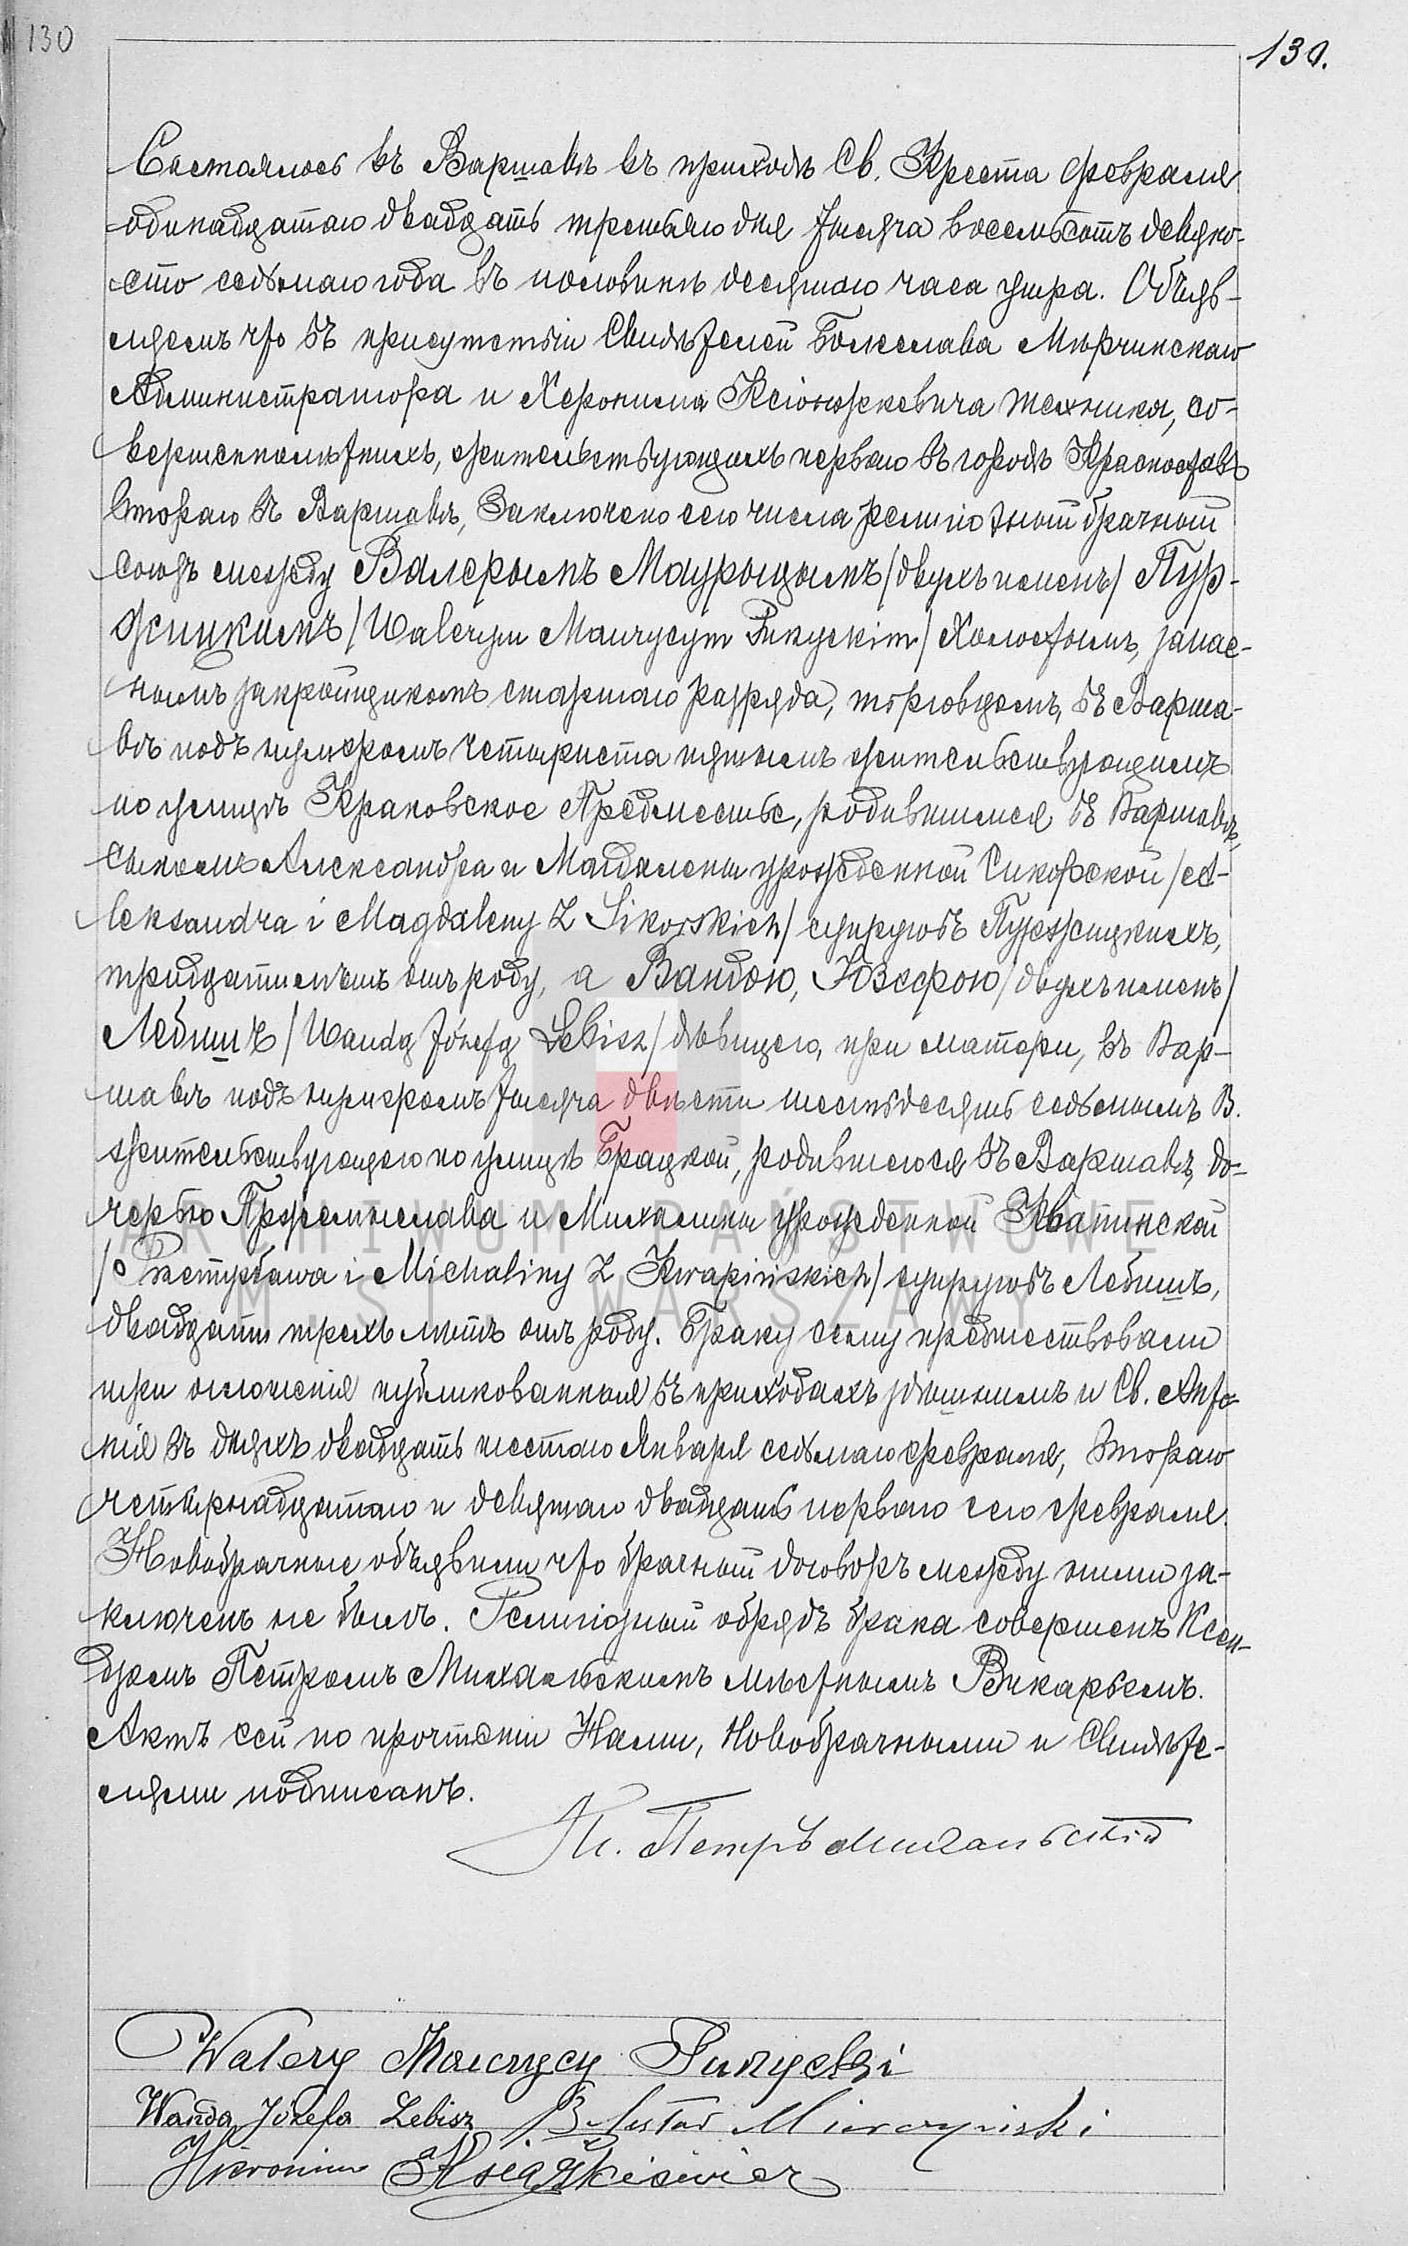 130
130.
Состоялось въ Варшавѣ въ приходѣ Св. Креста февраля
одинадцатаго двадцать третьяго дня тысяча восемьсотъ девяно-
сто седьмаго года въ половинѣ десятаго часа утра. Объяв-
ляемъ что въ присутствіи Свидѣтелей Болеслава Мѣрчинскаго
Администратора и Херонима Ксіонжкевича техника, со-
вершеннолѣтнихъ, жительствующихъ первого въ городѣ Красноставѣ
втораго въ Варшавѣ, Заключено сего числа религіозный брачный
союзъ между Валерымъ Маурыцымъ /двухъ именъ/ Пур-
жицкимъ /Walerym Maurycym Purzyckim/ Холостымъ, запас-
нымъ закройщикомъ старшаго разряда, торговцемъ, въ Варша-
вѣ подъ нумеромъ четыриста пятымъ жительствующимъ
по улицѣ Краковское Предместье, родившимся въ Варшавѣ,
сыномъ Александра и Магдалены урожденной Сикорской /A-
leksandra i Magdaleny z Sikorskich/ супруговъ Пуржицкихъ,
тридцати лѣтъ отъ роду, а Вандою, Юзефою /двухъ именъ/
Лебишъ /Wandą Józefą Lebisz/ дѣвицею, при матери, въ Вар-
шавѣ подъ нумеромъ тысяча двѣсти шестьдесять седьмымъ В.
жительствующею по улицѣ Брацкой, родившеюся въ Варшавѣ, до-
черью Пржемыслава и Михалины урожденной Квапинской
/Przemysława i Michaliny z Kwapińskich/ супруговъ Лебишъ,
двадцати трехъ лѣтъ отъ роду. Браку сему предшествовали
три оглошенія публикованныя въ приходахъ здѣшнемъ и Св. Анто-
нія въ дняхъ двадцать шестаго Января седьмаго февраля, втораго
четырнадцатаго и девятаго двадцать перваго сего февраля.
Новобрачные объявили что брачный договоръ между ними за-
ключенъ не былъ. Религіозный обрядъ брака совершенъ Ксен-
дзомъ Петромъ Михальскимъ мѣстнымъ Викарьемъ.
Актъ сей по прочтеніи Нами, Новобрачными и Свидѣте-
лями подписанъ.
Кс. Петръ Михальскій
Walery Maurycy Purzycki
Wanda Józefa Lebisz Bolesław Mierczyński
Hieronim Książkiewicz
ARCHIWUM PAŃSTWOWE
M.ST. WARSZAWY